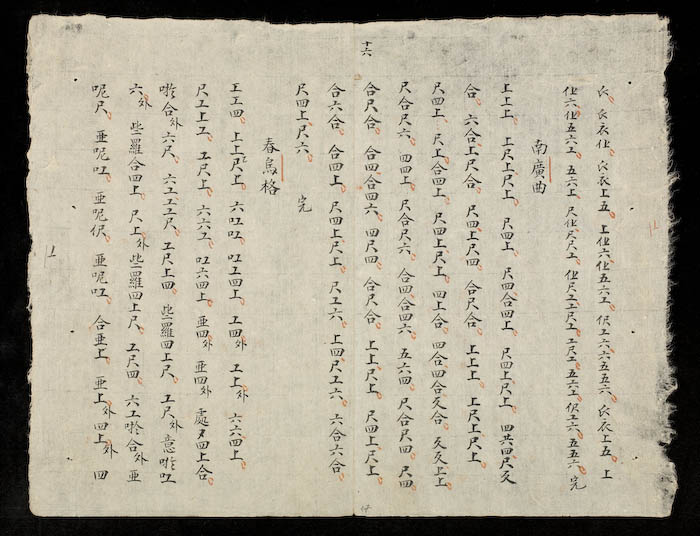 十六
衣仩 衣上五 上仩六仩五六工 伬工六六五五六 衣上五 上
仩六仩五六工 五六上 尺仩尺尺工 仩尺工工尺工 工尺工 五六工 伬工六 五五六 完
南廣曲
上上上 上尺上尺上 尺四上 尺四合四上 尺四上尺上 四六四尺
合 六合上尺合 尺四上尺四 合尺合 上上上 上尺上尺上
尺四上 尺上合四上 尺四上尺上 四上合 四合四合 合 上上
尺合尺六 四四上 尺合尺六 合四合四六 五六四 尺合尺四 尺四
合尺合 合四合四六 四尺四 合尺合 上上尺上 尺四上尺上
合六合 合四上 尺四上尺上 尺工六 上四尺工六 六合六合
尺四上尺六 完
春烏格
工工四 上上尺上 六吐吐 吐工四上 工四外 工上外 六六四上
尺工上工 工尺上 六六工 吐六四上 亜四外 亜四外 處夕四上合
合外六尺 六工工工尺 工尺上四 些羅四上尺 工尺外意 吐
六外 些羅合四上 尺上外些羅四上尺 工尺四 六工 合外 亜
呢尺 亜呢吐 亜呢伬 亜呢吐 合亜上 亜上外四上外 四